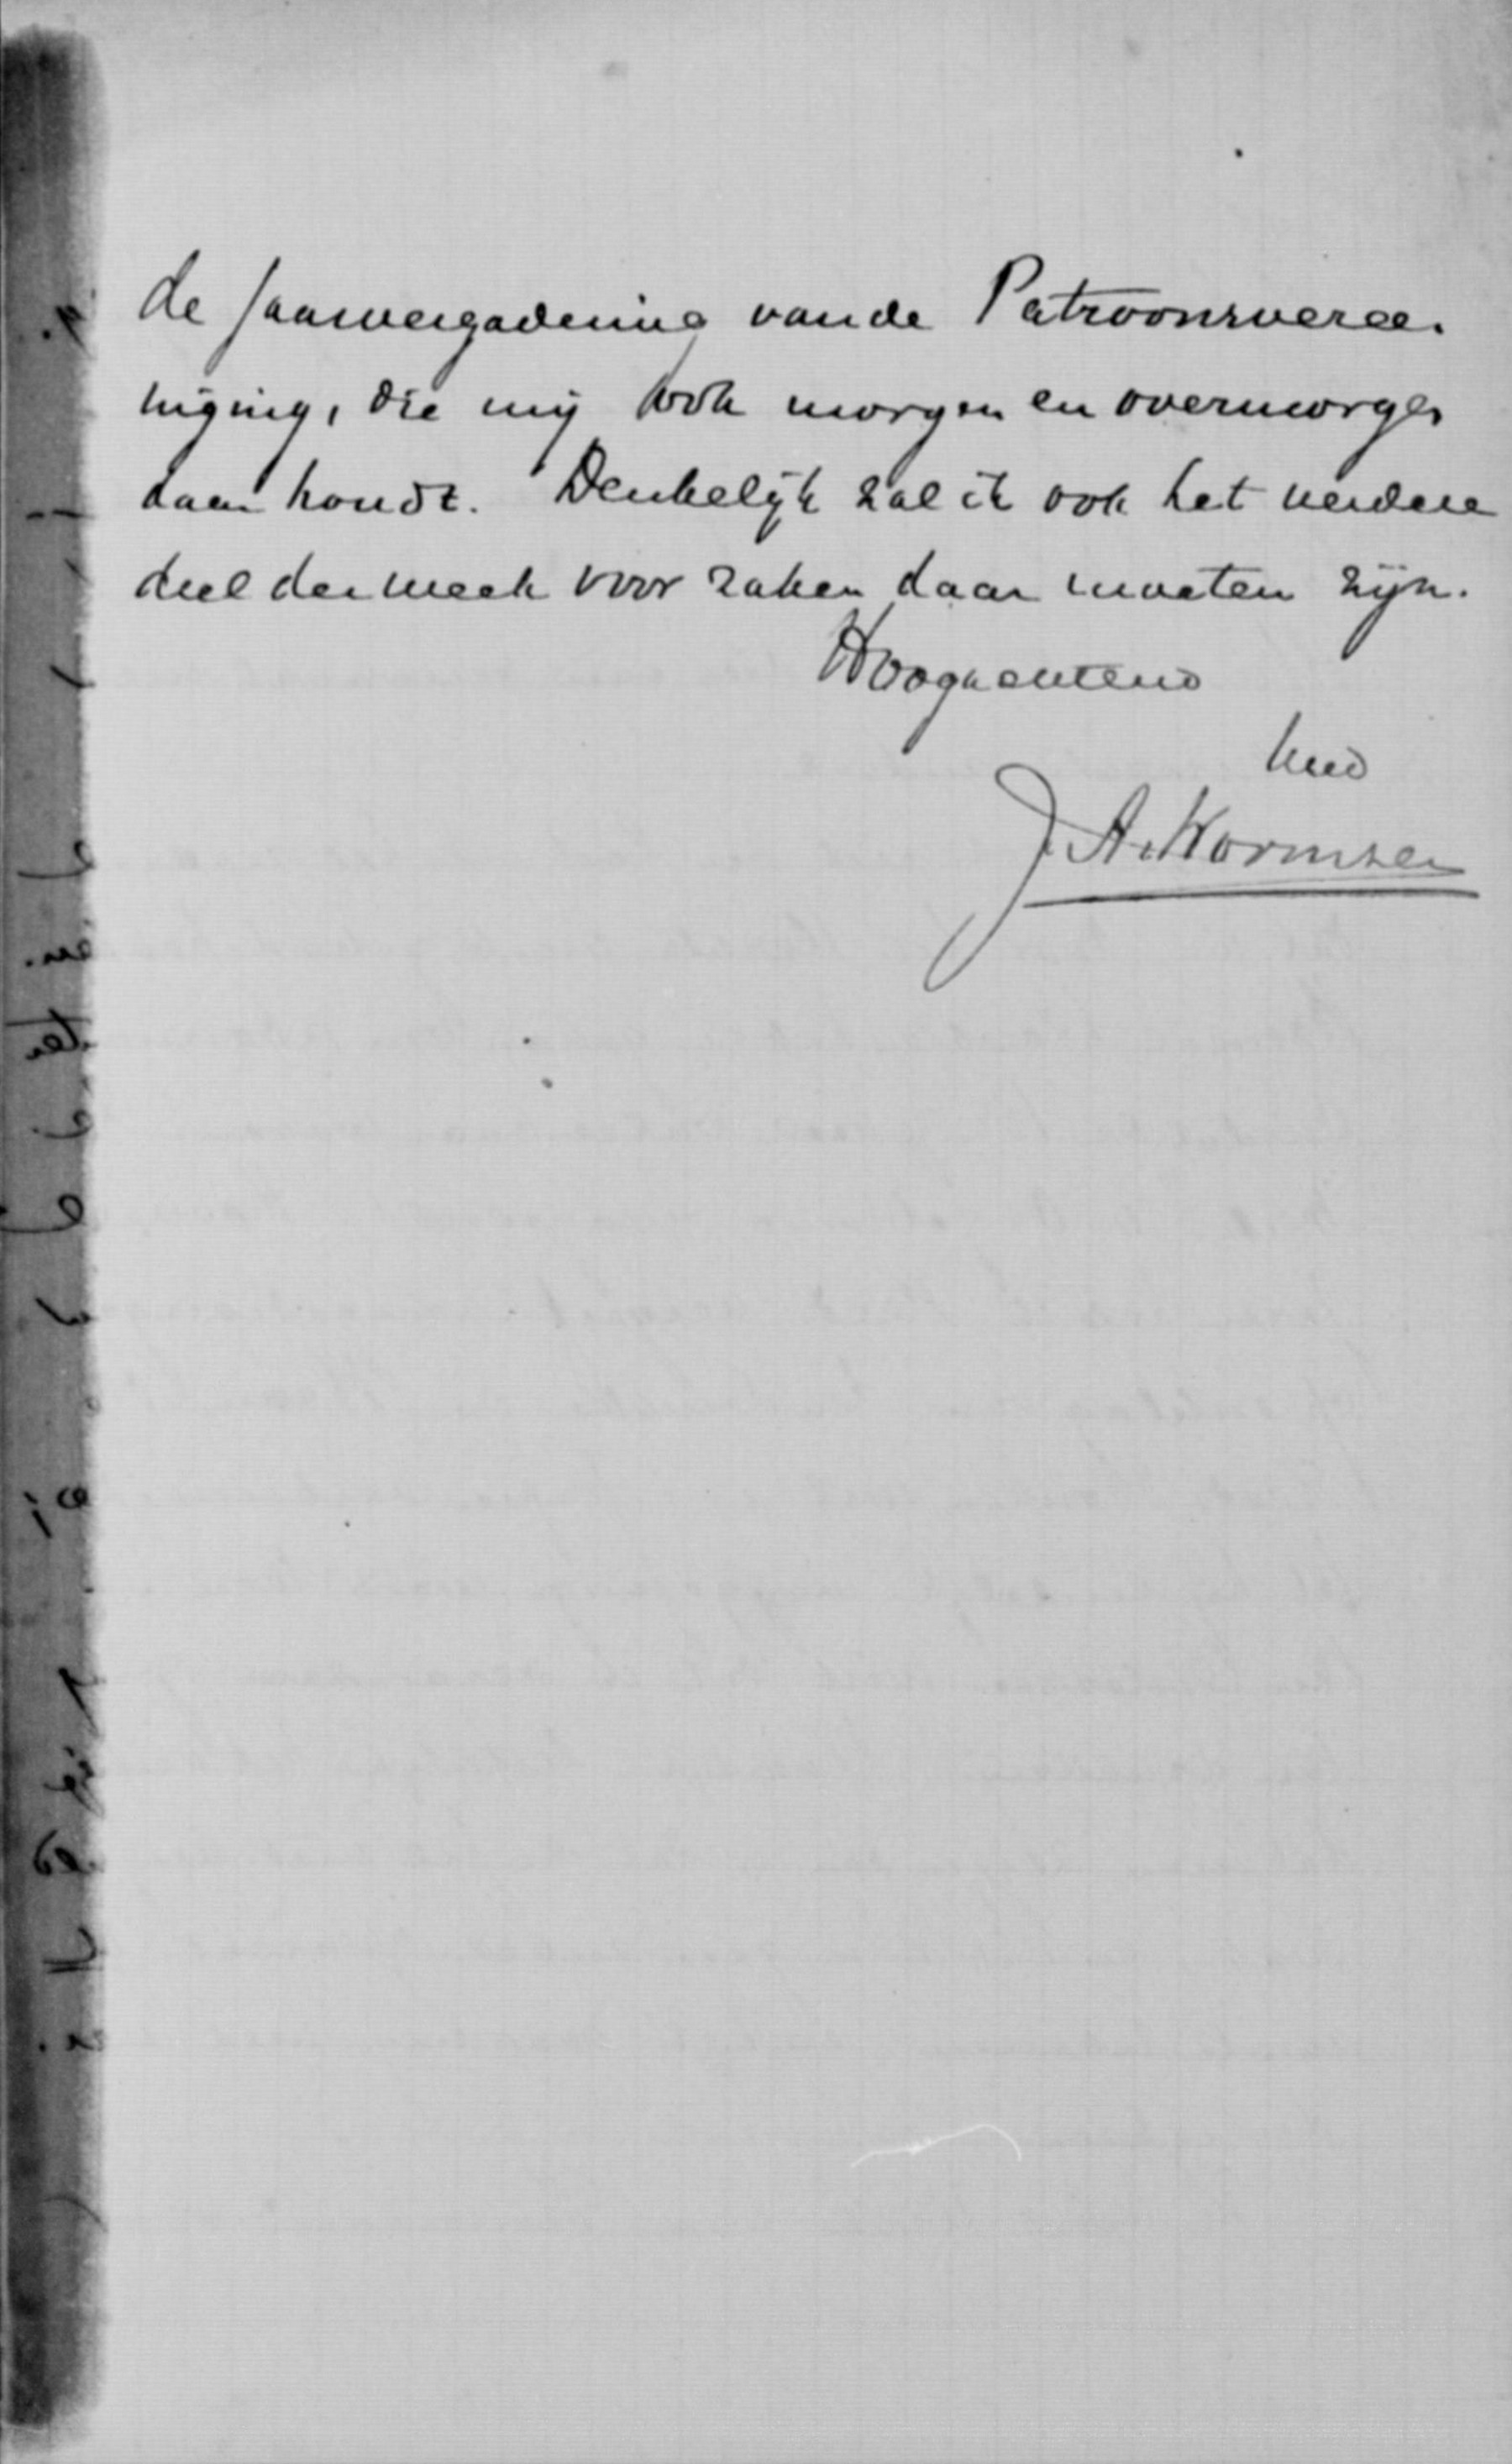 de Jaarvergadering van de Patroonsveree-
niging, die mij ook morgen en overmorgen
daar houdt. Denkelijk zal ik ook het verdere
deel der week voor zaken daar moeten zijn.
Hoogachtend
Uwd
J. A. Wormser